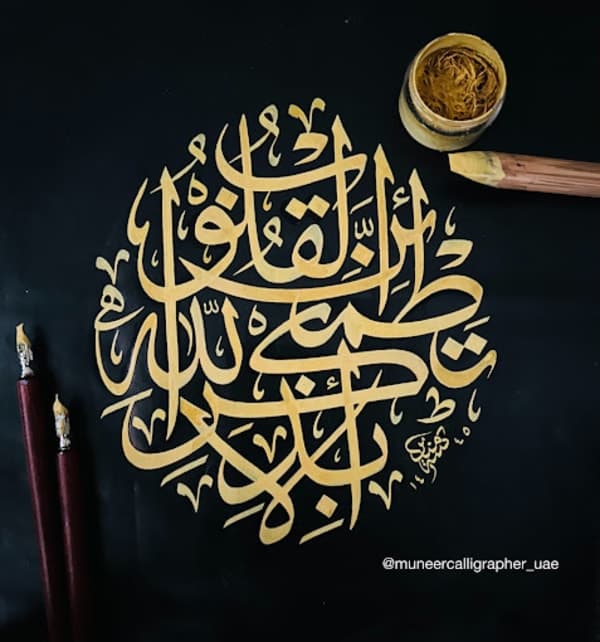 ألا بذكر الله تطمئن القلوب
كتبه منير
١٤٤٥
@muneercalligrapher_uae